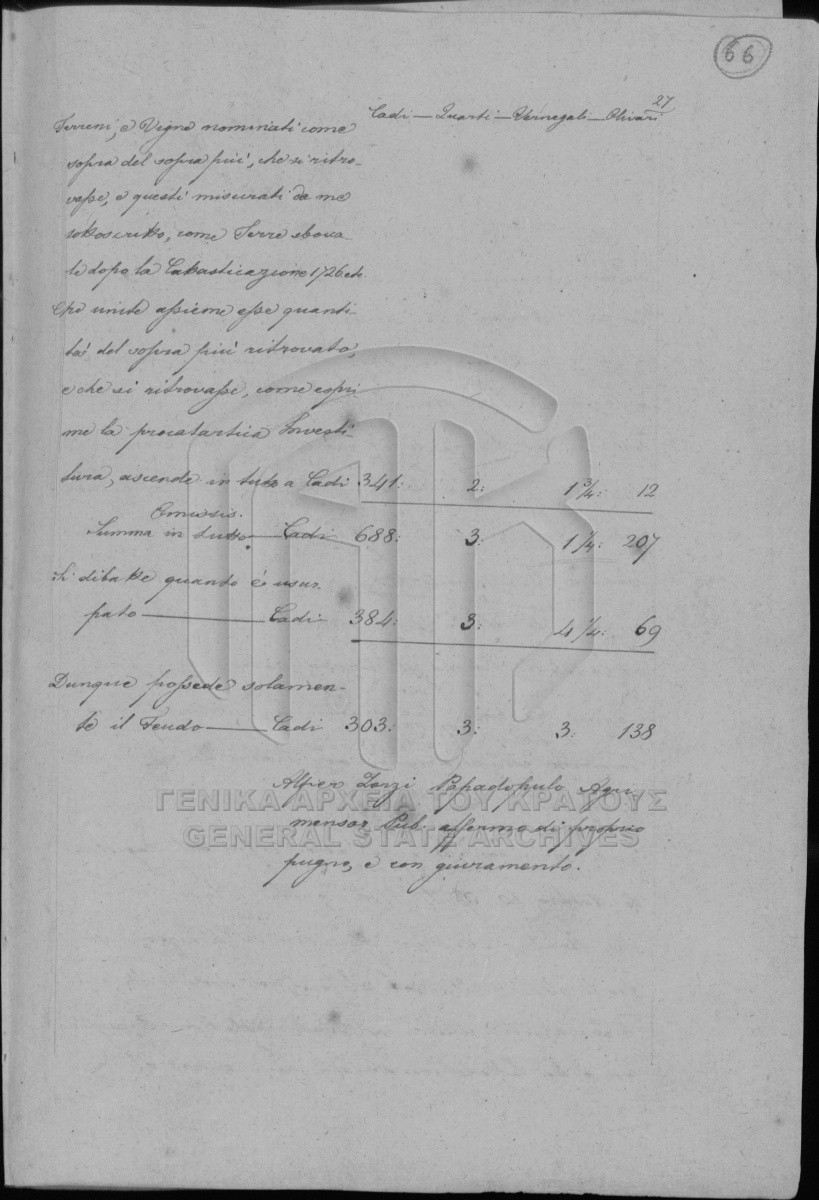 66
27
Cadi — Quarti — Vernegali — Olivari
Terreni, e Vigne nominati come
sopra del sopra più, che si ritro-
vasse, e questi misurati da me
sottoscritto, come Terre sbova-
te dopo la Catasticazione 1726 etc.
Che unite assieme esse quanti-
tà del sopra più ritrovato,
e che si ritrovasse, come espri-
me la procatartica Investi-
tura, ascende in tutto a Cadi 341: 2: 1 3/4: 12
Omissis.
Summa in tutto — Cadi 688: 3: 1 1/4: 207
Si dibatte quanto è usur-
pato — Cadi 384: 3: 4 1/4: 69
Dunque possede solamen-
te il Feudo — Cadi 303: 3: 3: 138
Alfier Zorzi Papadopulo Agri-
mensor Pub: affermo di proprio
pugno, e con giuramento.
ΓΕΝΙΚΑ ΑΡΧΕΙΑ ΤΟΥ ΚΡΑΤΟΥΣ
GENERAL STATE ARCHIVES